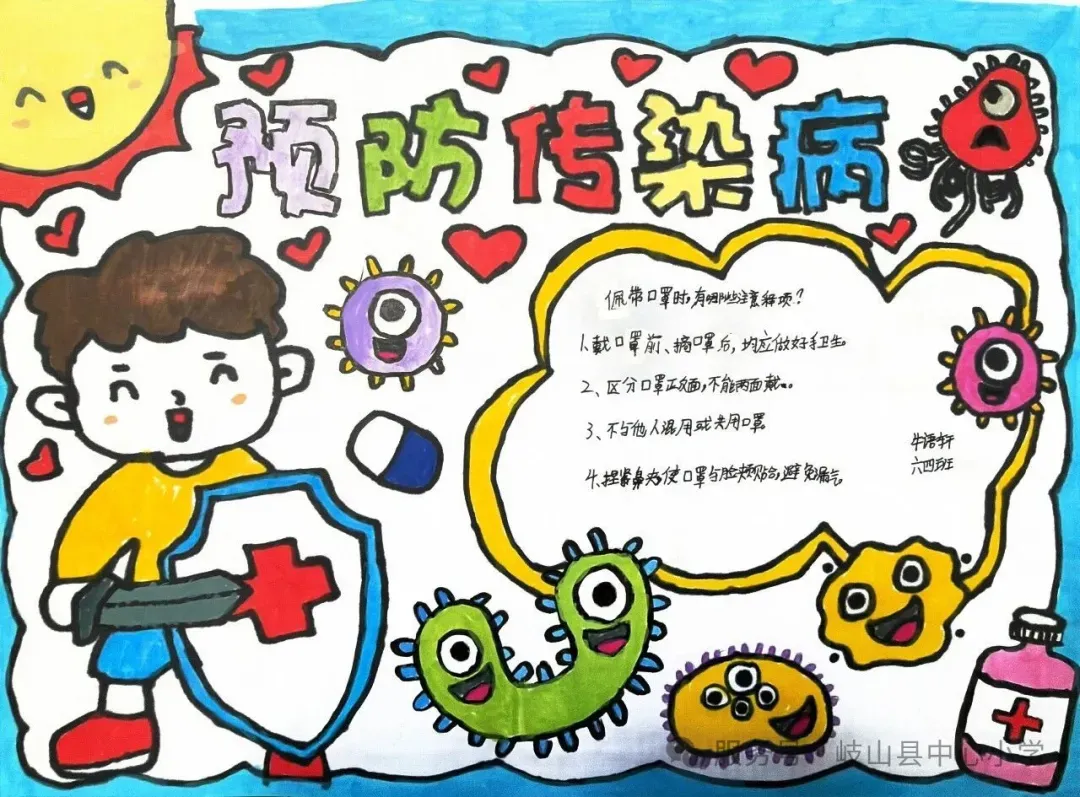 预防传染病
佩带口罩时,有哪些注意事项?
1.戴口罩前、摘口罩后,均应做好手卫生。
2、区分口罩正反面,不能两面戴。
3、不与他人混用或共用口罩
4.捏紧鼻夹使口罩与脸颊贴合,避免漏气。
牛语轩
六四班
服务号 岐山县中心小学